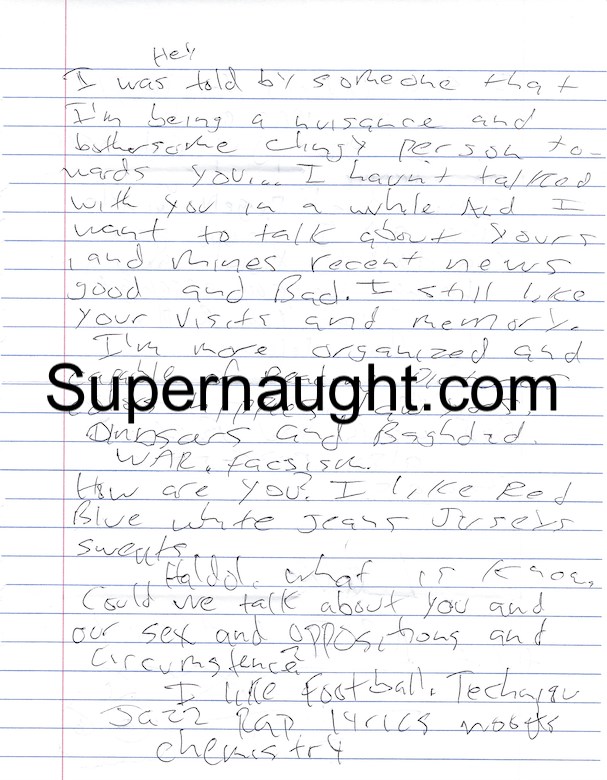 Hey
I was told by someone that
I'm being a nuisance and
bothersome clingy person to-
wards you... I havn't talked
with you in a while And I
want to talk about yours
,and mines recent news
good and Bad. I still like
your visits and memory.
I'm more organized and
Supernaught.com
Dinosars and Baghdad.
WAR. facsism.
How are you? I like Red
Blue white jeans Jurseys
sweats
Haldol. what is know,
Could we talk about you and
our sex and oppositions and
circumstence?
I like football. Techniqu
Jazz Rap lyrics
chemistry